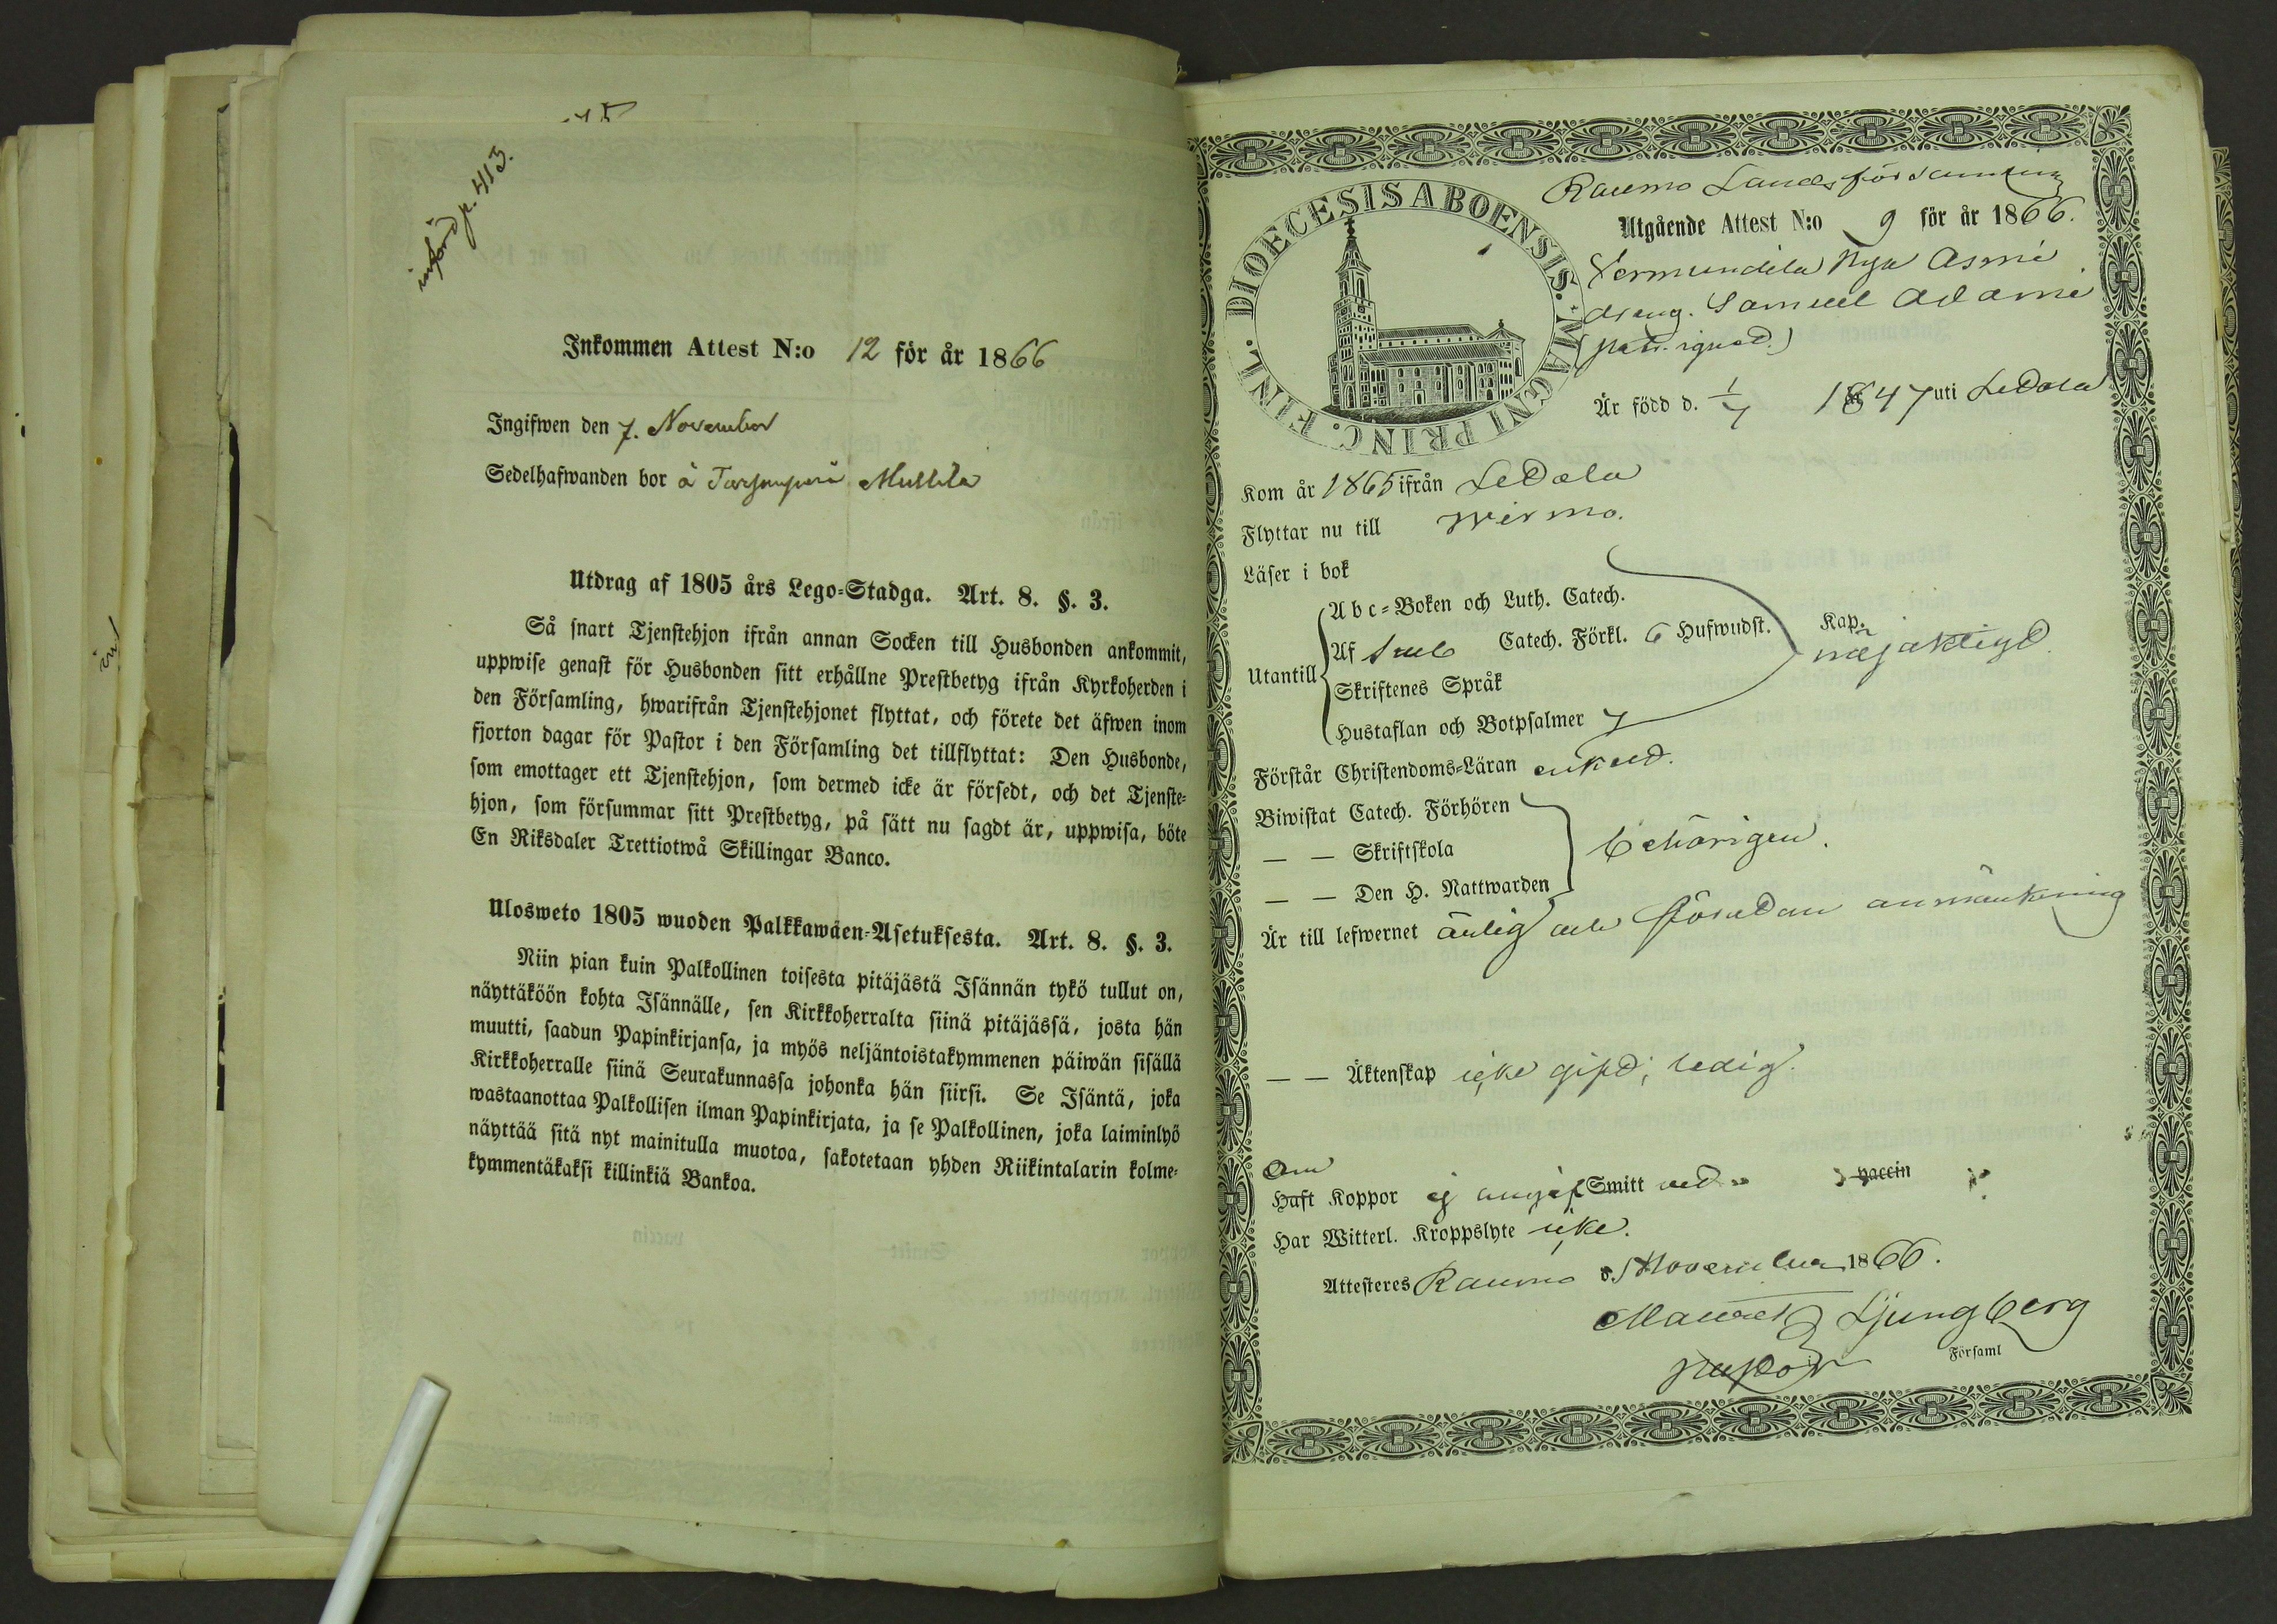 införd p. 413.
Inkommen Attest N:o 12 för år 1866
Ingifwen den 7. November
Sedelhafwanden bor å Mullila
Utdrag af 1805 års Lego-Stadga. Art. 8. §. 3.
Så snart Tjenstehjon ifrån annan Socken till Husbonden ankommit,
uppwise genast för Husbonden sitt erhållne Prestbetyg ifrån Kyrkoherden i
den Församling, hwarifrån Tjenstehjonet flyttat, och förete det äfwen inom
fjorton dagar för Pastor i den Församling det tillflyttat: Den Husbonde,
som emottager ett Tjenstehjon, som dermed icke är försedt, och det Tjenste-
hjon, som försummar sitt Prestbetyg, på sätt nu sagdt är, uppwisa, böte
En Riksdaler Trettiotwå Skillingar Banco.
Ulosweto 1805 wuoden Palkkawäen-Asetuksesta. Art. 8. §. 3.
Niin pian kuin Palkollinen toisesta pitäjästä Isännän tykö tullut on,
näyttäköön kohta Isännälle, sen Kirkkoherralta siinä pitäjässä, josta hän
muutti, saadun Papinkirjansa, ja myös neljäntoistakymmenen päiwän sisällä
Kirkkoherralle siinä Seurakunnassa johonka hän siirsi. Se Isäntä, joka
wastaanottaa Palkollisen ilman Papinkirjata, ja se Palkollinen, joka laiminlyö
näyttää sitä nyt mainitulla muotoa, sakotetaan yhden Riikintalarin kolme-
kymmentäkaksi killinkiä Bankoa.
DIOECESIS ABOENSIS. MAGNI PRINC. FINL.
Raumo Landsförsamling
Utgående Attest N:o 9 för år 1866.
Vermundila Nya Asmi
dreng. Samuel Adami
Är född d. 1/7 1847 uti Ledala
Kom år 1865 ifrån Ledala
Flyttar nu till Wirmo.
Läser i bok
Utantill
Abc-Boken och Luth. Catech.
Af Catech. Förkl. 6 Hufwudst. Kap.
nöjaktigt
Skriftenes Språk
Hustaflan och Botpsalmer 7
Förstår Christendoms-Läran enkelt.
Biwistat Catech. Förhören
— — Skriftskola behörigen.
— — Den H. Nattwarden
Är till lefwernet ärlig och utan anmärkning
— — Äktenskap icke gift; ledig.
Om
Haft Koppor ej angif Smitt med vaccin
Har Witterl. Kroppslyte icke.
Attesteres Raumo d. 5 November 1866.
Mauritz Ljungberg
pastor Församl